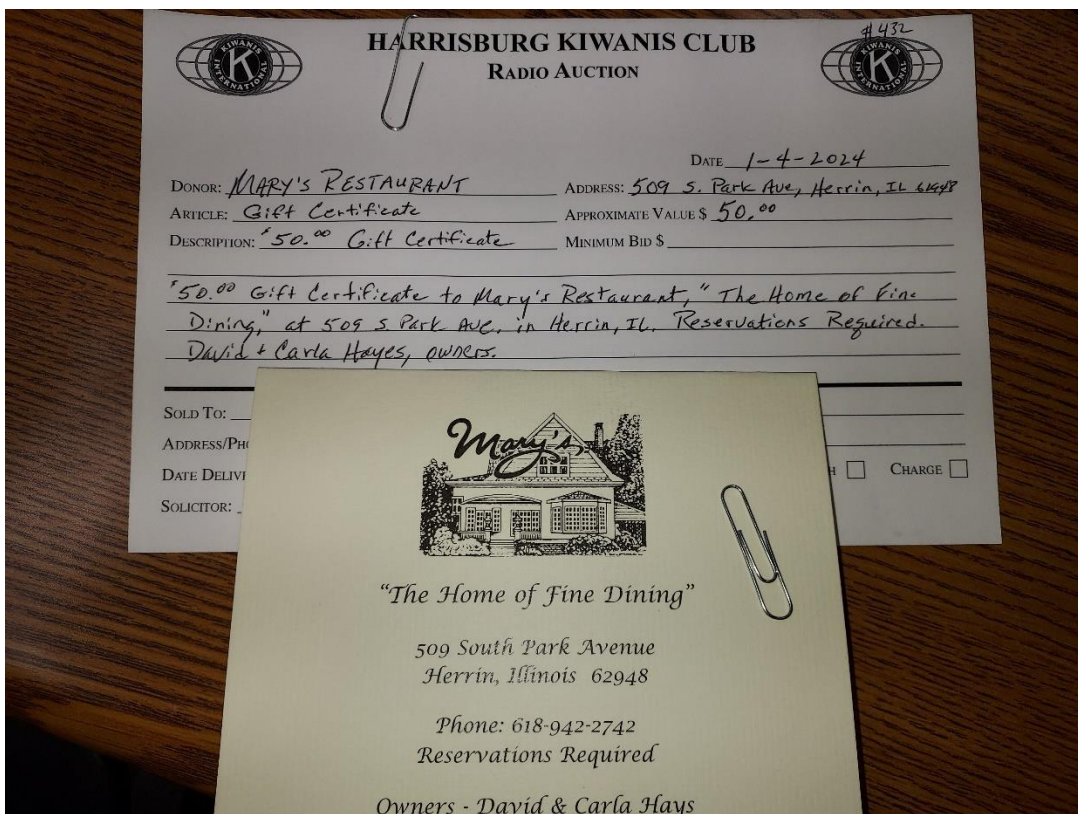 # 432
HARRISBURG KIWANIS CLUB
RADIO AUCTION
KIWANIS
K
INTERNATIONAL
KIWANIS
K
INTERNATIONAL
DATE 1-4-2024
DONOR: MARY'S RESTAURANT ADDRESS: 509 S. Park Ave, Herrin, IL 61948
ARTICLE: Gift Certificate APPROXIMATE VALUE $ 50.00
DESCRIPTION: $50.00 Gift Certificate MINIMUM BID $
$50.00 Gift Certificate to Mary's Restaurant, "The Home of Fine
Dining," at 509 S. Park Ave. in Herrin, IL. Reservations Required.
David + Carla Hayes, owners.
SOLD TO:
ADDRESS/PH
DATE DELIVE
CHARGE
SOLICITOR:
Mary's
"The Home of Fine Dining"
509 South Park Avenue
Herrin, Illinois 62948
Phone: 618-942-2742
Reservations Required
Owners - David & Carla Hays